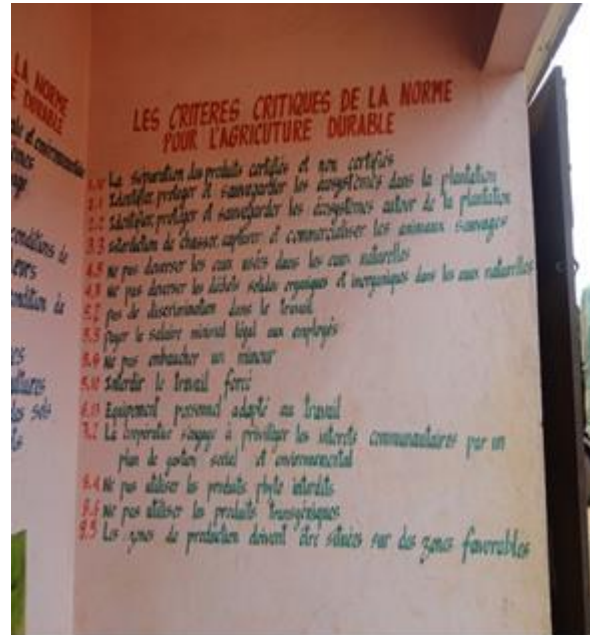 LA NORME
DURABLE
conditions de
LES CRITERES CRITIQUES DE LA NORME
POUR L'AGRICUTURE DURABLE
La séparation des produits certifiés et non certifiés
2.1 Identifier, protéger et sauvegarder les écosystèmes dans la plantation
2.2 Identifier, protéger et sauvegarder les écosystèmes autour de la plantation
3.3 interdiction de chasser, capturer et commercialiser les animaux sauvages
4.5 ne pas deverser les eaux usées dans les eaux naturelles
ne pas deverser les déchets solides organiques et inorganiques dans les eaux naturelles
5.2 pas de discrimination dans le travail
5.5 payer le salaire minimal légal aux employés
ne pas embaucher un mineur
5.10 Interdir le travail forcé
6.13 Equipement personnel adapté au travail
7.2 La coopérative s'engage à privilégier les intérets communautaires par un
plan de gestion social et environnemental
8.4 Ne pas utiliser les produits phyto interdits
8.6 ne pas utiliser les produits transgéniques
9.5 Les zones de production doivent être situées sur des zones favorables